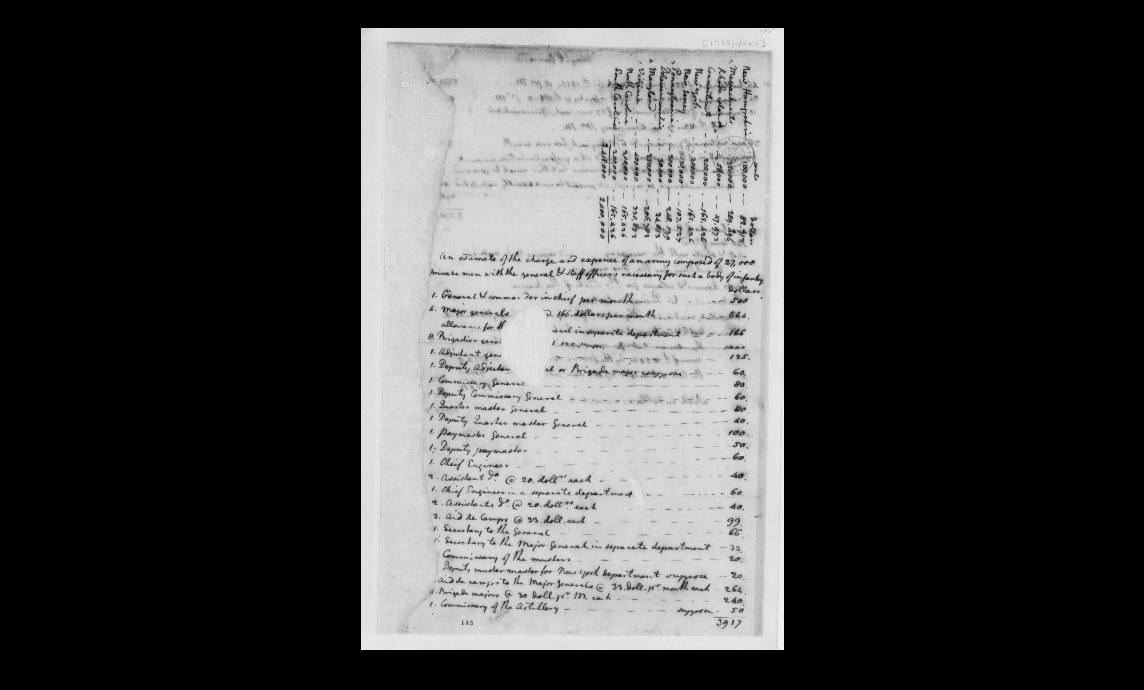 New Hampshire 100,000 82,713
Massachusetts 350,000
Rhode island
Connecticut 200,000 165,426
New York 200,000 165,426
New Jersey
Pennsylvania
Delaware
Maryland
Virginia 400,000 330,852
North Carolina 200,000 165,426
South Carolina 200,000 165,426
2,000,000
An estimate of the charge and expence of an army composed of 27,000
private men with the general & staff officers necessary for such a body of infantry
dollars
1. General & commander in chief per month 500
4. Major generals 166 dollars per month 664.
allowance for th eral in separate department 166
8. Brigadier gene
1. Adjutant gene 125.
1. Deputy Adjutan l or Brigade major suppose 60.
1. Commissary General 80
1. Deputy Commissary General 60.
1. Quarter master General 80
1. Deputy Quarter master General 40.
1. Paymaster General 100.
1. Deputy paymaster 50.
1. Cheif Engineer 60.
2. Assistant do. @ 20. dollrs each 40.
1. Chief Engineer in a separate department 60
2. Assistants do. @ 20. dollrs each 40.
3. Aid de Camps @ 33. doll. each 99
1. Secretary to the General 66.
1. Secretary to the Major General in separate department 33.
Commissary of the musters 20.
Deputy muster master for New York department suppose 20.
Aid de camps to the Major Generals @ 33. doll. pr. month each 264.
Brigade majors @ 30 doll. pr. M. each 240.
1. Commissary of the Artillery suppose 50
3917
145